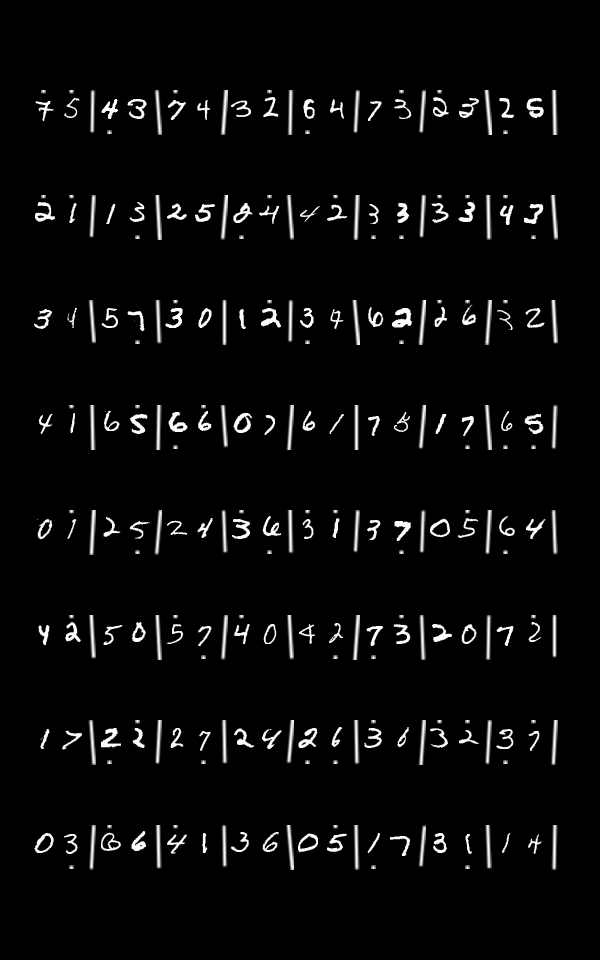 7 5 | 4 3 | 7 4 | 3 2 | 6 4 | 7 3 | 2 3 | 2 5 |
2 1 | 1 3 | 2 5 | 4 | 4 2 | 3 3 | 3 3 | 4 3 |
3 4 | 5 7 | 3 0 | 1 2 | 3 4 | 6 2 | 2 6 | 3 2 |
4 1 | 6 5 | 6 6 | 0 7 | 6 1 | 7 5 | 1 7 | 6 5 |
0 1 | 2 5 | 2 4 | 3 6 | 3 1 | 3 7 | 0 5 | 6 4 |
4 2 | 5 0 | 5 7 | 4 0 | 4 2 | 7 3 | 2 0 | 7 2 |
1 7 | 2 2 | 2 7 | 2 4 | 2 6 | 3 6 | 3 2 | 3 7 |
0 3 | 6 6 | 4 1 | 3 6 | 0 5 | 1 7 | 3 1 | 1 4 |